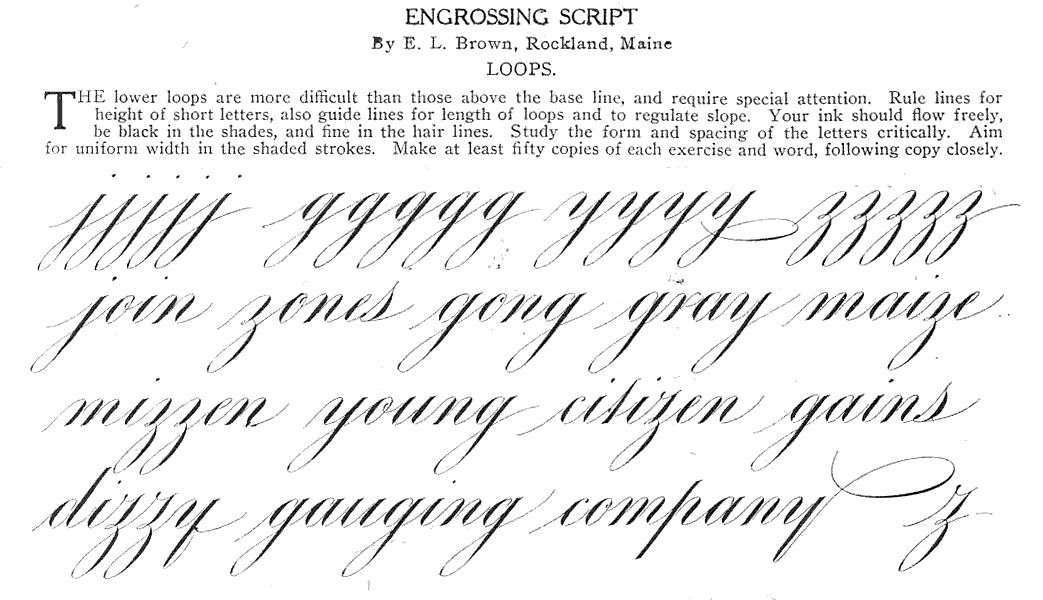 ENGROSSING SCRIPT
By E. L. Brown, Rockland, Maine
LOOPS.
THE lower loops are more difficult than those above the base line, and require special attention. Rule lines for
height of short letters, also guide lines for length of loops and to regulate slope. Your ink should flow freely,
be black in the shades, and fine in the hair lines. Study the form and spacing of the letters critically. Aim
for uniform width in the shaded strokes. Make at least fifty copies of each exercise and word, following copy closely.
jjjjj ggggg yyyy zzzzz
join zones gong gray maize
mizzen young citizen gains
dizzy gauging company z